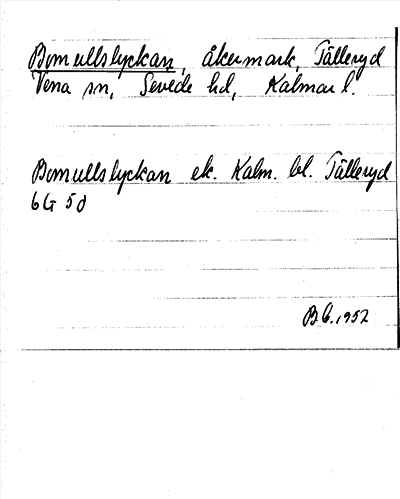 Bomullslyckan, åkermark, Tälleryd
Vena sn, Sevede hd, Kalmar l.
Bomullslyckan ek. Kalm. bl. Tälleryd
6G 5d
B.G. 1952